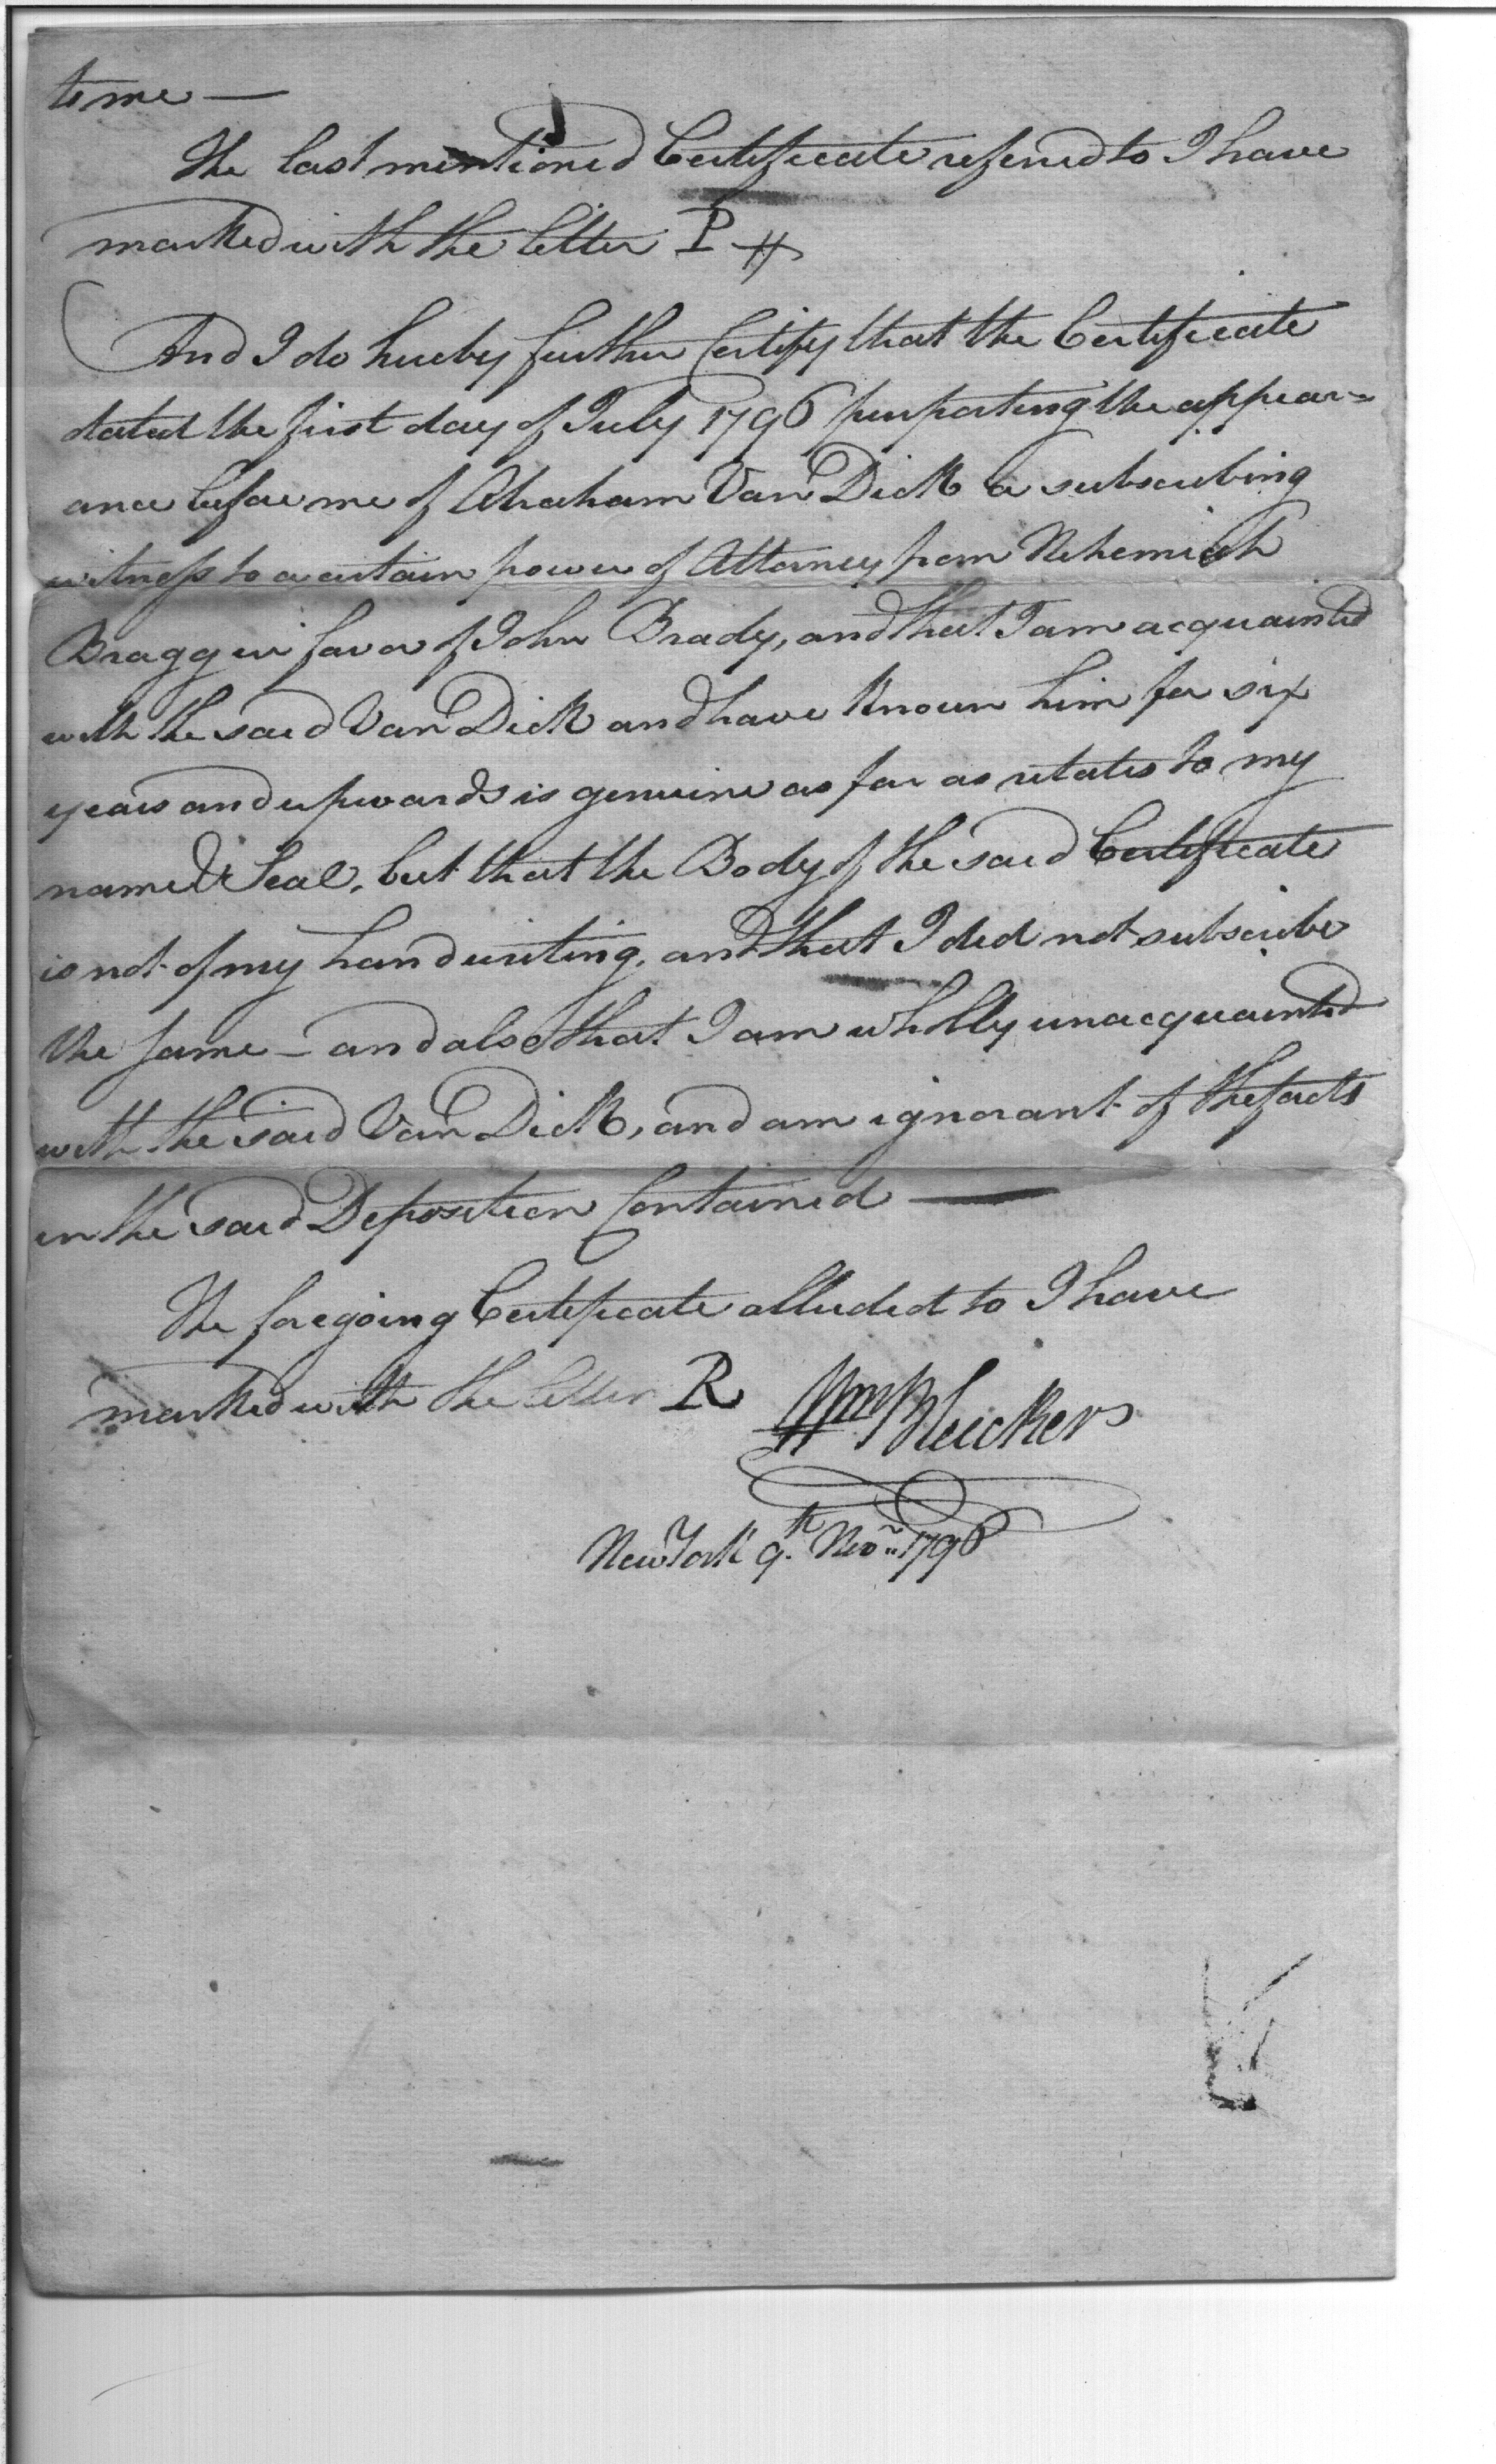 to me —
The last mentioned Certificate refered to I have
marked with the letter P
And I do hereby further Certify that the Certificate
dated the first day of July 1796 purporting the appear=
ance before me of Abraham Van Dick a subscribing
witness to a certain power of Attorney from Nehemiah
Bragg in favor of John Brady, and that I am acquainted
with the said Van Dick and have Known him for six
years and upwards is genuine as far as relates to my
name & Seal, but that the Body of the said Certificate
is not of my handwriting, and that I did not subscribe
the same — and also that I am wholly unacquainted
with the said Van Dick, and am ignorant of the facts
in the said Deposition Contained —
The foregoing Certificate alluded to I have
marked with the letter R
Wm Bleeckers
New York 9th Nov. 1796